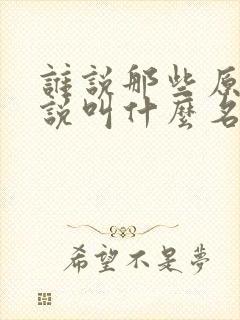 誰説那些原
説叫什麼名
希望不是夢